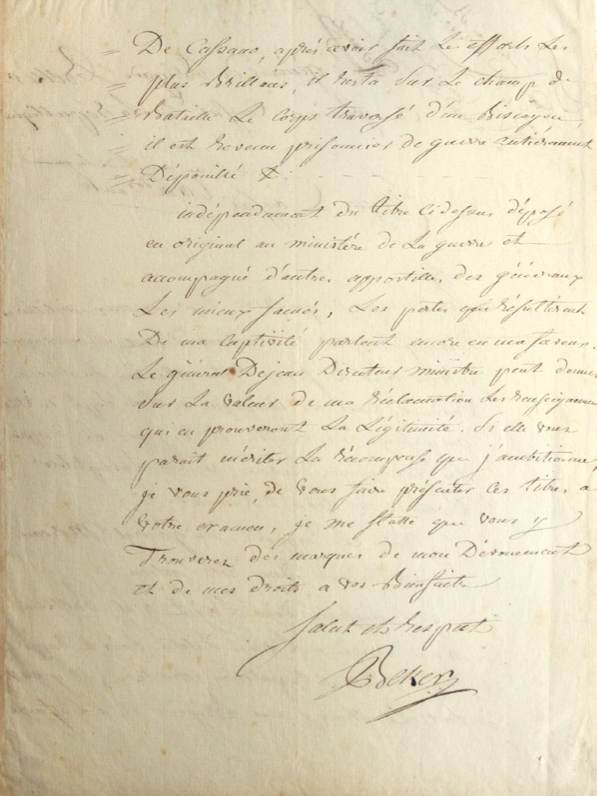 = De Cassano, après avoir fait Le efforts Les
= plus Brillans, il resta Sur Le champ de
= Bataille Le Corps traversé d'un Biscayen,
= il est Revenu prisonnier de guerre entièrement
= Dépouillé &.
indépendament du titre cidessus déposé
en original au ministère de La guerre et
accompagné d'autres appostilles des généraux
Les mieux famés, Les pertes qui Résultèrent
De ma captivité parlent encore en ma faveur.
Le général Dejean Directeur ministre peut donner
Sur La valeur de ma Réclamation Les renseignemens
qui en prouveront La Légitimité. Si elle vous
parait mériter La Récompense que j'ambitionne,
je vous prie, de vous faire présenter ces titres a
votre examen, je me flatte que vous y
Trouverez des marques de mon Dévouement
et de mes droits a vos Bienfaits
Salut et Respect
Beker